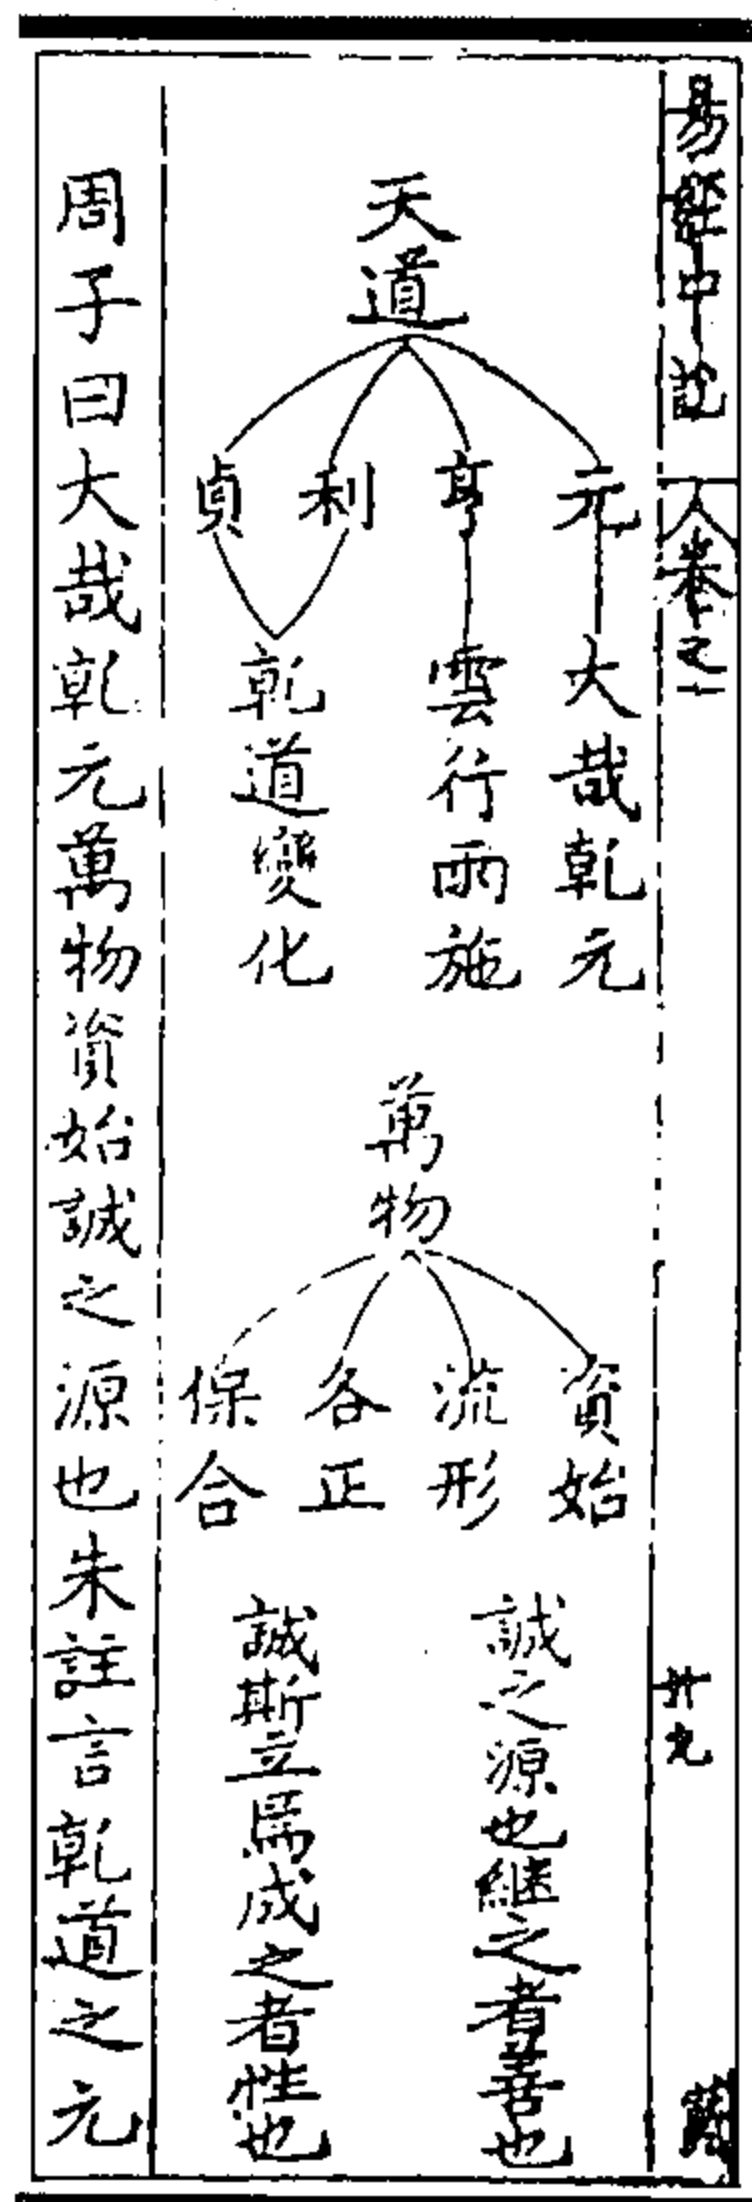 易經中說 卷之十
廿九
天道
元 亨 利 貞
大哉乾元
雲行雨施
乾道變化
萬物
資始 流形 各正 保合
誠之源也繼之者善也
誠斯立焉成之者性也
周子曰大哉乾元萬物資始誠之源也朱註言乾道之元